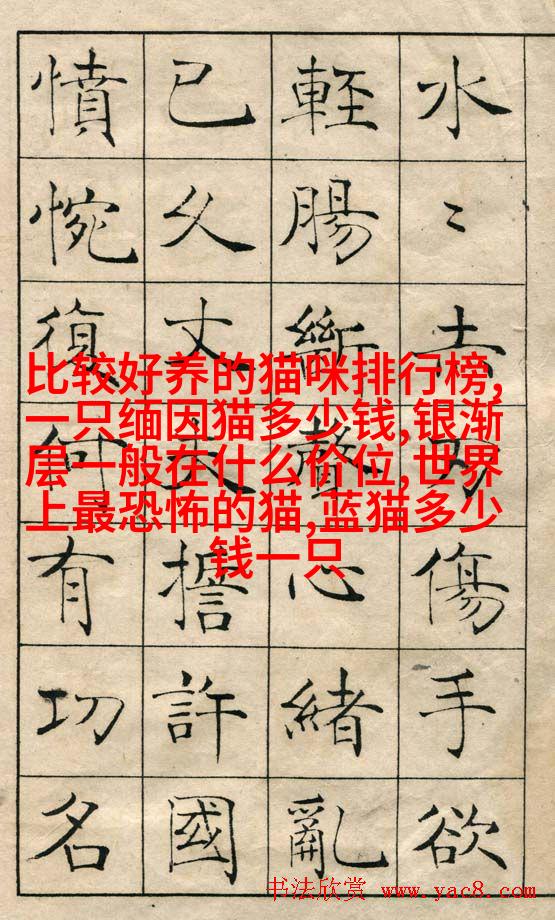 水〻赤刃傷手欲
輕腸斷聲心緒亂
已久丈夫誓許國
憤惋復何有功名
比较好养的猫咪排行榜,
一只缅因猫多少钱,银渐
层一般在什么价位,世界
上最恐怖的猫,蓝猫多少
钱一只
书法欣赏 www.yac8.com